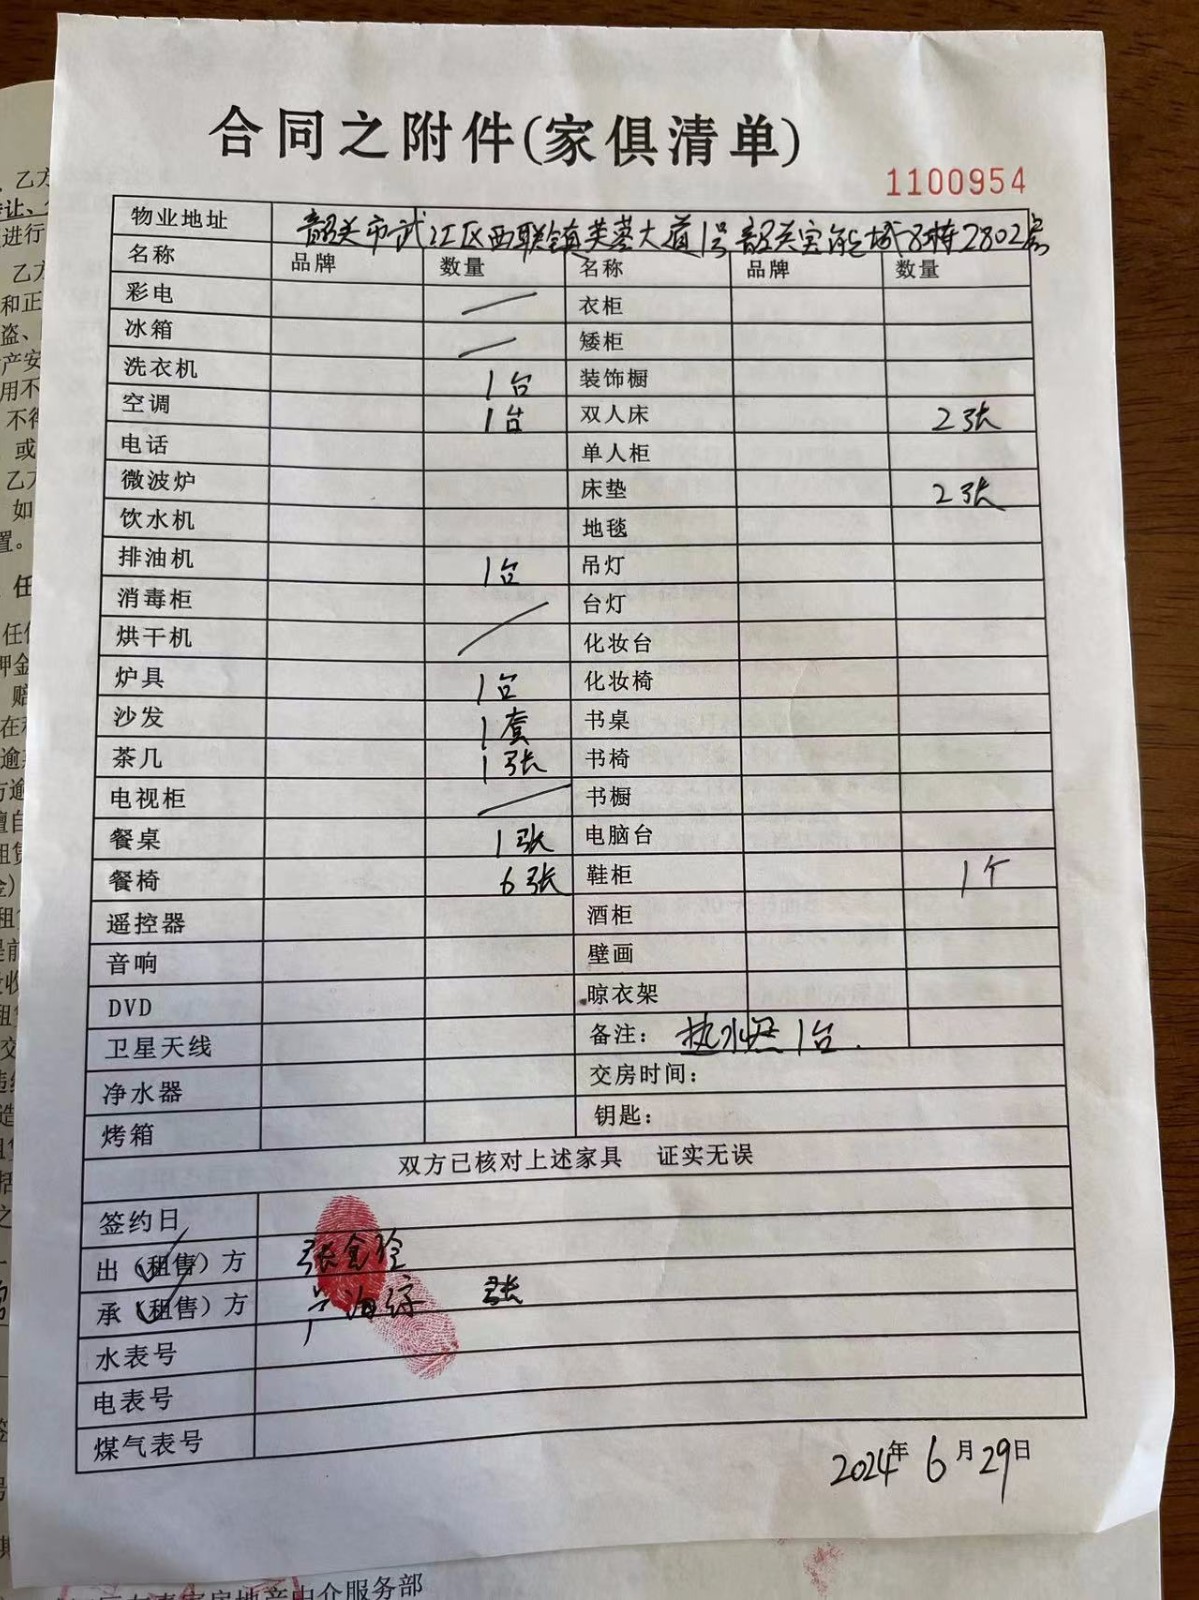 合同之附件(家俱清单)
1100954
物业地址 韶关市武江区西联镇芙蓉大道1号韶关宝能城8栋2802房
名称 品牌 数量 名称 品牌 数量
彩电 衣柜
冰箱 矮柜
洗衣机 1台 装饰橱
空调 1台 双人床 2张
电话 单人柜
微波炉 床垫 2张
饮水机 地毯
排油机 1台 吊灯
消毒柜 台灯
烘干机 化妆台
炉具 1台 化妆椅
沙发 1套 书桌
茶几 1张 书椅
电视柜 书橱
餐桌 1张 电脑台
餐椅 6张 鞋柜 1个
遥控器 酒柜
音响 壁画
DVD 晾衣架
卫星天线 备注: 热水器1台.
净水器 交房时间:
烤箱 钥匙:
双方已核对上述家具 证实无误
签约日
出(租售)方 张
承(租售)方 张
水表号
电表号
煤气表号
2024年6月29日
房地产中介服务部